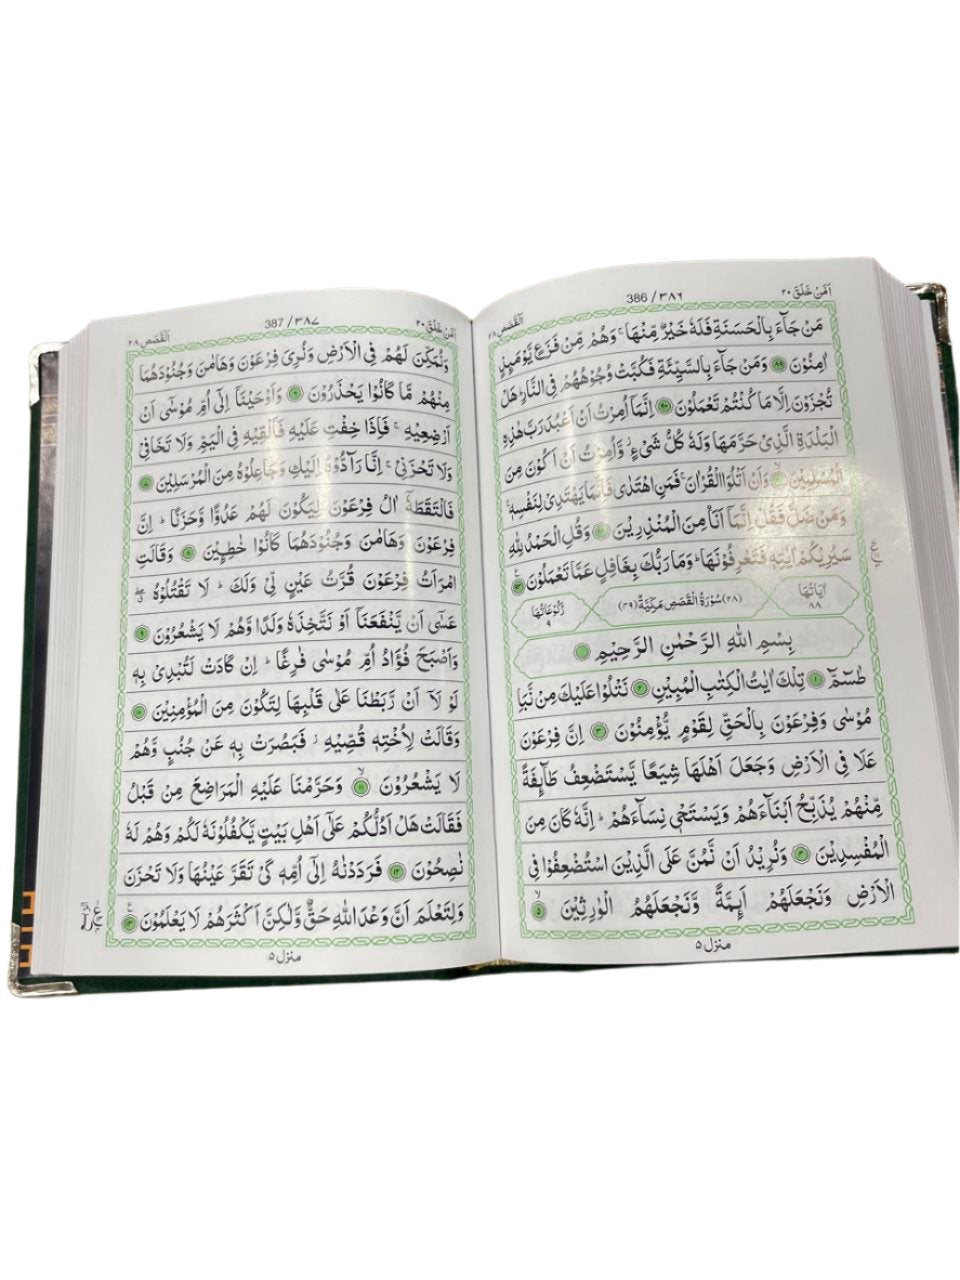 اَمَّنْ خَلَقَ ٢٠
386 / ٣٨٦
اَلْقَصَص ٢٨
مَنْ جَآءَ بِالْحَسَنَةِ فَلَهٗ خَيْرٌ مِّنْهَا ۚ وَهُمْ مِّنْ فَزَعٍ يَّوْمَىِٕذٍ
اٰمِنُوْنَ ۝٨٩ وَمَنْ جَآءَ بِالسَّيِّئَةِ فَكُبَّتْ وُجُوْهُهُمْ فِى النَّارِ ؕ هَلْ
تُجْزَوْنَ اِلَّا مَا كُنْتُمْ تَعْمَلُوْنَ ۝٩٠ اِنَّمَاۤ اُمِرْتُ اَنْ اَعْبُدَ رَبَّ هٰذِهِ
الْبَلْدَةِ الَّذِيْ حَرَّمَهَا وَلَهٗ كُلُّ شَيْءٍ ؗ وَّاُمِرْتُ اَنْ اَكُوْنَ مِنَ
الْمُسْلِمِيْنَ ۝٩١ وَاَنْ اَتْلُوَا الْقُرْاٰنَ ۚ فَمَنِ اهْتَدٰى فَاِنَّمَا يَهْتَدِيْ لِنَفْسِهٖ ۚ
وَمَنْ ضَلَّ فَقُلْ اِنَّمَاۤ اَنَا مِنَ الْمُنْذِرِيْنَ ۝٩٢ وَقُلِ الْحَمْدُ لِلّٰهِ
سَيُرِيْكُمْ اٰيٰتِهٖ فَتَعْرِفُوْنَهَا ؕ وَمَا رَبُّكَ بِغَافِلٍ عَمَّا تَعْمَلُوْنَ ۝٩٣
اٰيَاتُهَا ٨٨
(٢٨) سُوْرَةُ الْقَصَصِ مَكِّيَّةٌ (٤٩)
رُكُوْعَاتُهَا ٩
بِسْمِ اللّٰهِ الرَّحْمٰنِ الرَّحِيْمِ
طٰسٓمّٓ ۝١ تِلْكَ اٰيٰتُ الْكِتٰبِ الْمُبِيْنِ ۝٢ نَتْلُوْا عَلَيْكَ مِنْ نَّبَاِ
مُوْسٰى وَفِرْعَوْنَ بِالْحَقِّ لِقَوْمٍ يُّؤْمِنُوْنَ ۝٣ اِنَّ فِرْعَوْنَ
عَلَا فِى الْاَرْضِ وَجَعَلَ اَهْلَهَا شِيَعًا يَّسْتَضْعِفُ طَآىِٕفَةً
مِّنْهُمْ يُذَبِّحُ اَبْنَآءَهُمْ وَيَسْتَحْيٖ نِسَآءَهُمْ ؕ اِنَّهٗ كَانَ مِنَ
الْمُفْسِدِيْنَ ۝٤ وَنُرِيْدُ اَنْ نَّمُنَّ عَلَى الَّذِيْنَ اسْتُضْعِفُوْا فِى
الْاَرْضِ وَنَجْعَلَهُمْ اَىِٕمَّةً وَّنَجْعَلَهُمُ الْوٰرِثِيْنَ ۝٥
منزل ٥
اَمَّنْ خَلَقَ ٢٠
387 / ٣٨٧
اَلْقَصَص ٢٨
وَنُمَكِّنَ لَهُمْ فِى الْاَرْضِ وَنُرِيَ فِرْعَوْنَ وَهَامٰنَ وَجُنُوْدَهُمَا
مِنْهُمْ مَّا كَانُوْا يَحْذَرُوْنَ ۝٦ وَاَوْحَيْنَاۤ اِلٰۤى اُمِّ مُوْسٰۤى اَنْ
اَرْضِعِيْهِ ۚ فَاِذَا خِفْتِ عَلَيْهِ فَاَلْقِيْهِ فِى الْيَمِّ وَلَا تَخَافِيْ
وَلَا تَحْزَنِيْ ۚ اِنَّا رَآدُّوْهُ اِلَيْكِ وَجَاعِلُوْهُ مِنَ الْمُرْسَلِيْنَ ۝٧
فَالْتَقَطَهٗۤ اٰلُ فِرْعَوْنَ لِيَكُوْنَ لَهُمْ عَدُوًّا وَّحَزَنًا ؕ اِنَّ
فِرْعَوْنَ وَهَامٰنَ وَجُنُوْدَهُمَا كَانُوْا خٰطِـِٕيْنَ ۝٨ وَقَالَتِ
امْرَاَتُ فِرْعَوْنَ قُرَّتُ عَيْنٍ لِّيْ وَلَكَ ؕ لَا تَقْتُلُوْهُ ۖۗ
عَسٰۤى اَنْ يَّنْفَعَنَاۤ اَوْ نَتَّخِذَهٗ وَلَدًا وَّهُمْ لَا يَشْعُرُوْنَ ۝٩
وَاَصْبَحَ فُؤَادُ اُمِّ مُوْسٰى فٰرِغًا ؕ اِنْ كَادَتْ لَتُبْدِيْ بِهٖ
لَوْ لَاۤ اَنْ رَّبَطْنَا عَلٰى قَلْبِهَا لِتَكُوْنَ مِنَ الْمُؤْمِنِيْنَ ۝١٠
وَقَالَتْ لِاُخْتِهٖ قُصِّيْهِ ؗ فَبَصُرَتْ بِهٖ عَنْ جُنُبٍ وَّهُمْ
لَا يَشْعُرُوْنَ ۝١١ وَحَرَّمْنَا عَلَيْهِ الْمَرَاضِعَ مِنْ قَبْلُ
فَقَالَتْ هَلْ اَدُلُّكُمْ عَلٰۤى اَهْلِ بَيْتٍ يَّكْفُلُوْنَهٗ لَكُمْ وَهُمْ لَهٗ
نٰصِحُوْنَ ۝١٢ فَرَدَدْنٰهُ اِلٰۤى اُمِّهٖ كَيْ تَقَرَّ عَيْنُهَا وَلَا تَحْزَنَ
وَلِتَعْلَمَ اَنَّ وَعْدَ اللّٰهِ حَقٌّ وَّلٰكِنَّ اَكْثَرَهُمْ لَا يَعْلَمُوْنَ ۝١٣
منزل ٥